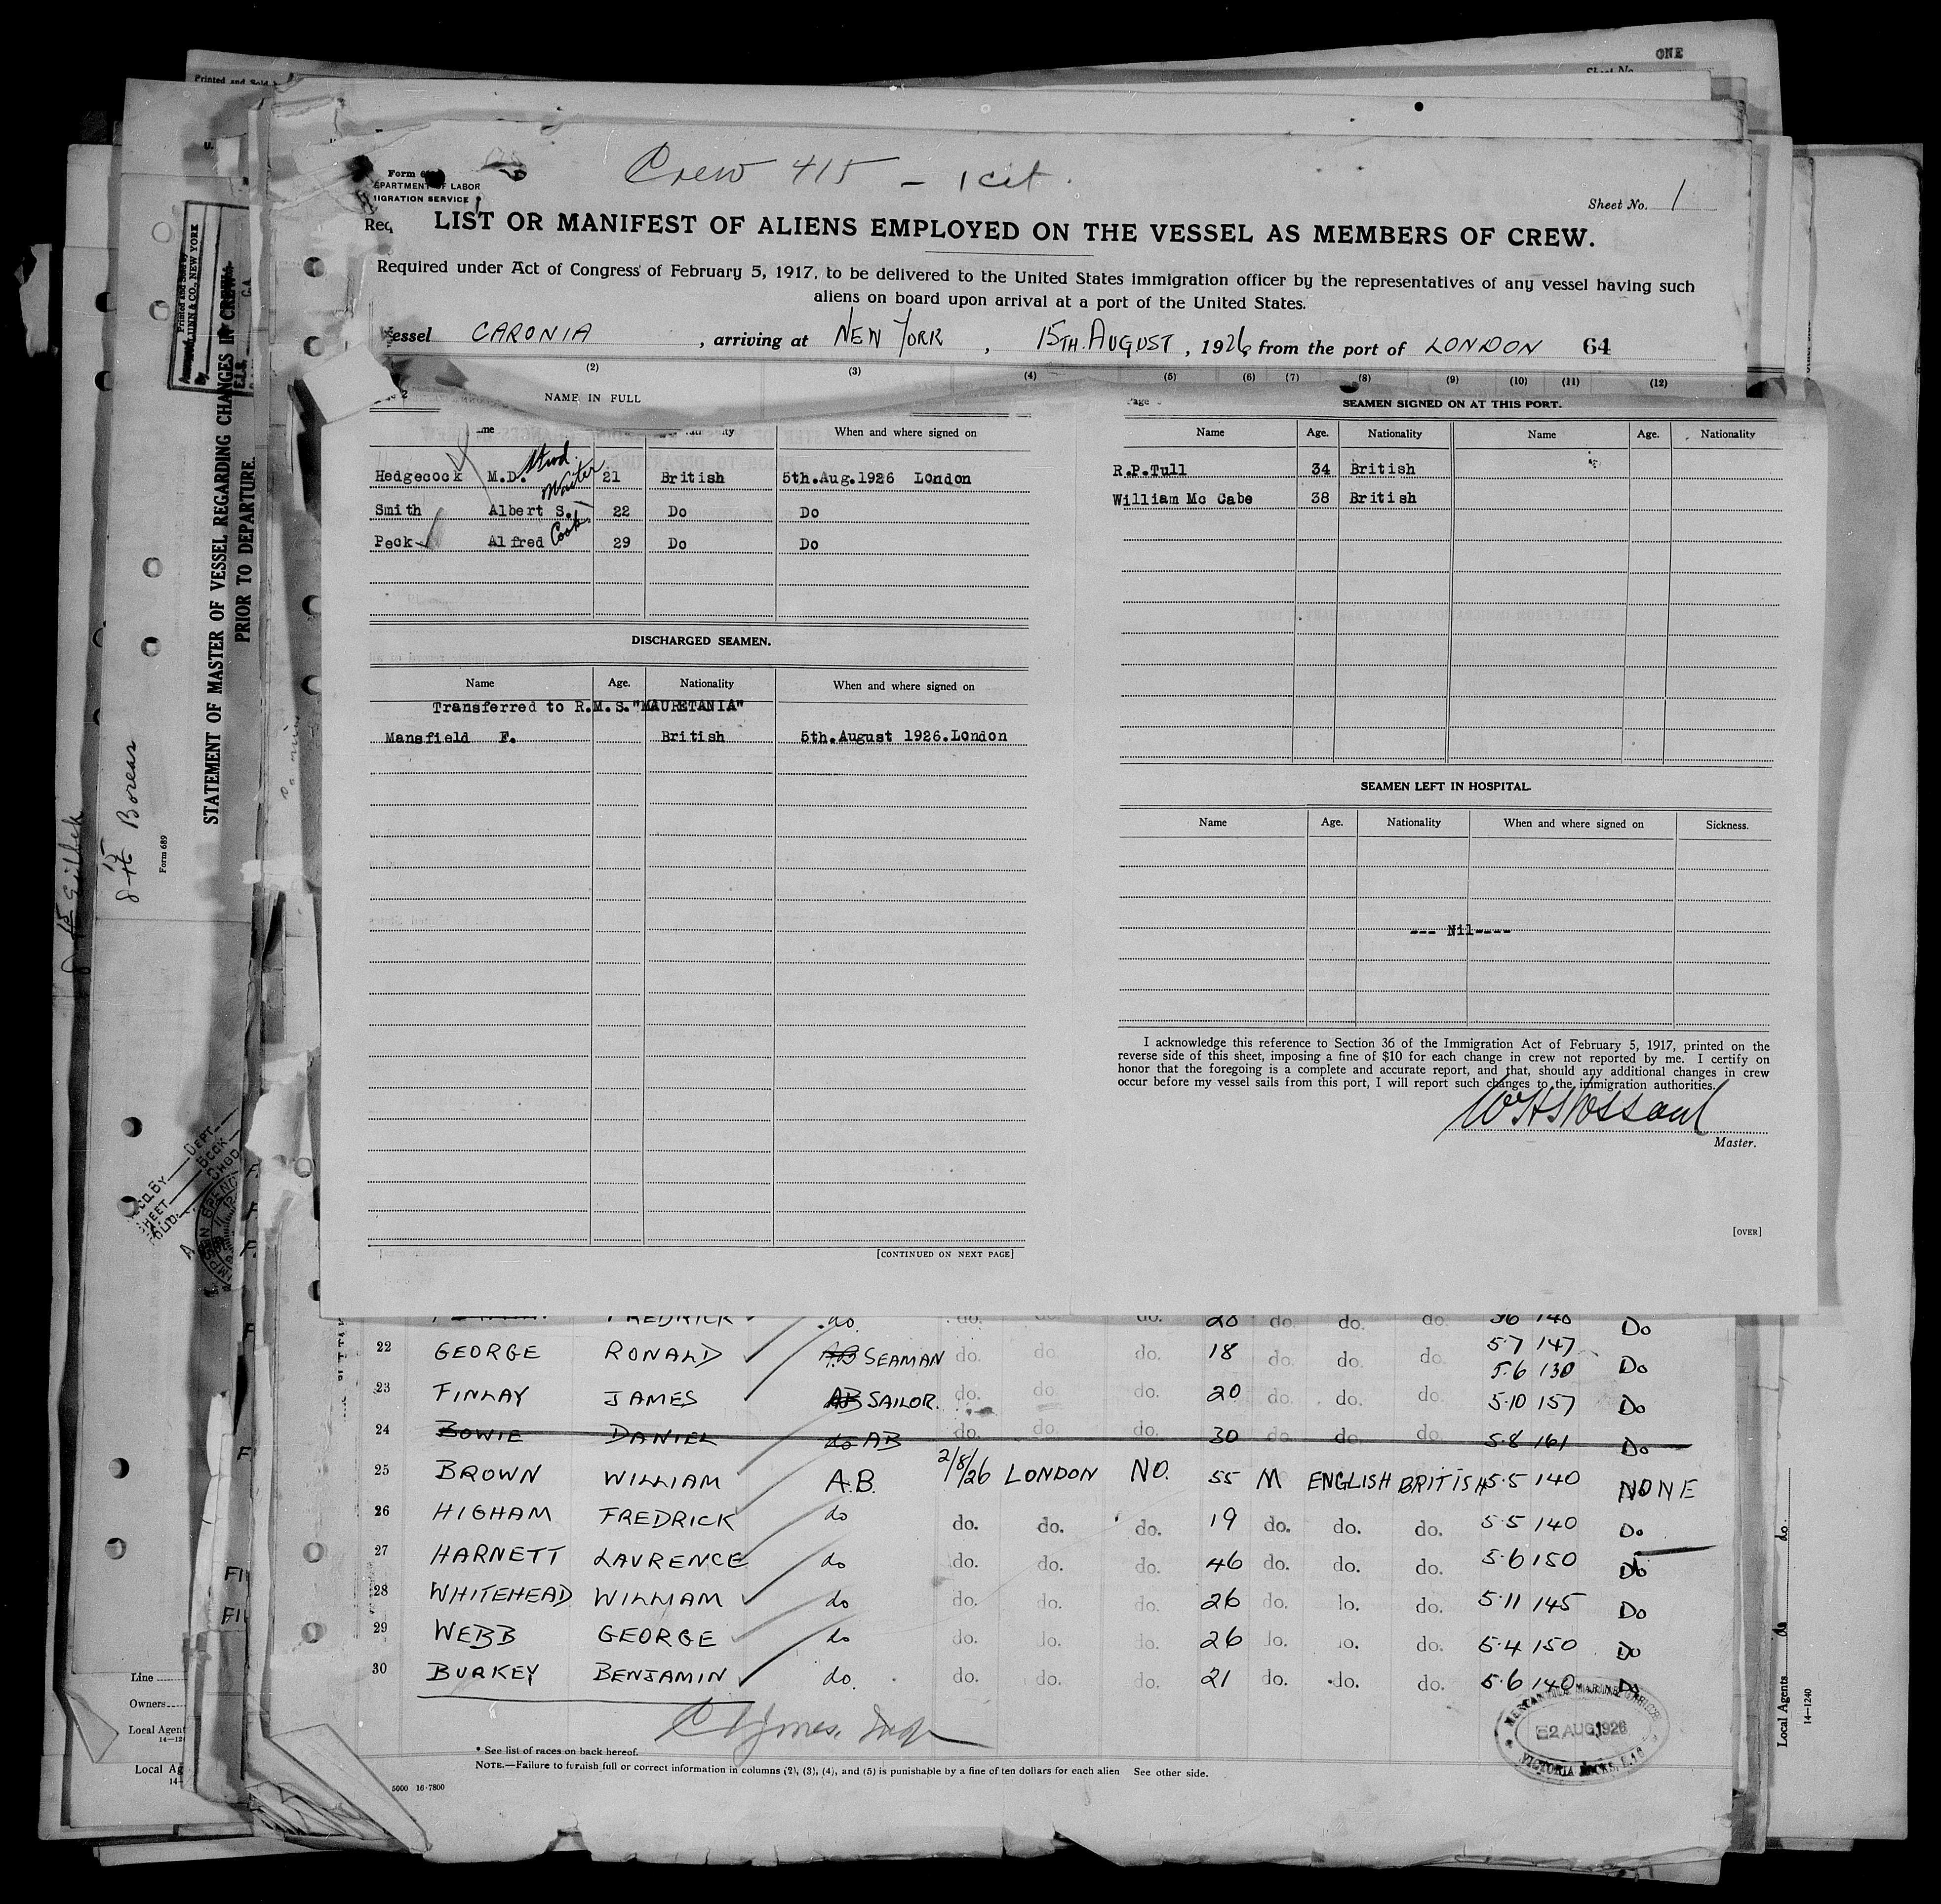 ONE
Printed and Sold b
Sheet No.
Crew 415 - 1 cit.
Form 6
EPARTMENT OF LABOR
MIGRATION SERVICE
Sheet No. 1
Req
LIST OR MANIFEST OF ALIENS EMPLOYED ON THE VESSEL AS MEMBERS OF CREW.
Required under Act of Congress of February 5, 1917, to be delivered to the United States immigration officer by the representatives of any vessel having such
aliens on board upon arrival at a port of the United States.
Vessel CARONIA, arriving at NEW YORK, 15TH. AUGUST, 1926, from the port of LONDON 64
(2) (3) (4) (5) (6) (7) (8) (9) (10) (11) (12)
2 NAME IN FULL
me ity When and where signed on
Hedgecock M.D. Stwd. Waiter 21 British 5th.Aug.1926 London
Smith Albert S. 22 Do Do
Peck Alfred Cook 29 Do Do
DISCHARGED SEAMEN.
Name Age. Nationality When and where signed on
Transferred to R.M.S."MAURETANIA"
Mansfield F. British 5th.August 1926.London
[CONTINUED ON NEXT PAGE]
Page
SEAMEN SIGNED ON AT THIS PORT.
Name Age. Nationality Name Age. Nationality
R.P.Tull 34 British
William Mc Cabe 38 British
SEAMEN LEFT IN HOSPITAL.
Name Age. Nationality When and where signed on Sickness.
--- Nil----
I acknowledge this reference to Section 36 of the Immigration Act of February 5, 1917, printed on the
reverse side of this sheet, imposing a fine of $10 for each change in crew not reported by me. I certify on
honor that the foregoing is a complete and accurate report, and that, should any additional changes in crew
occur before my vessel sails from this port, I will report such changes to the immigration authorities.
Master.
[OVER]
FREDRICK do. do. do. 20 do. do. do. 5 6 140 Do
22 GEORGE RONALD AB SEAMAN do. do. do. 18 do. do. do. 5.7 147
5.6 130 Do
23 FINLAY JAMES AB SAILOR. do. do. do. 20 do. do. do. 5.10 157 Do
24 BOWIE DANIEL do AB do. do. do. 30 do. do. do. 5.8 161 Do
25 BROWN WILLIAM A.B. 2/8/26 LONDON NO. 55 M ENGLISH BRITISH 5.5 140 NONE
26 HIGHAM FREDRICK do do. do. do. 19 do. do. do. 5.5 140 Do
27 HARNETT LAURENCE do do. do. do. 46 do. do. do. 5.6 150 Do
28 WHITEHEAD WILLIAM do do. do. do. 26 do. lo. do. 5.11 145 Do
29 WEBB GEORGE do do. do. do. 26 lo. lo. do. 5.4 150 Do
30 BURKEY BENJAMIN do. do. do. do. 21 do. do. do. 5.6 140 Do
* See list of races on back hereof.
NOTE.—Failure to furnish full or correct information in columns (2), (3), (4), and (5) is punishable by a fine of ten dollars for each alien See other side.
5000 16-7800
MERCANTILE MARINE OFFICE
2 AUG 1926
VICTORIA DOCKS, E.16
STATEMENT OF MASTER OF VESSEL REGARDING CHANGES IN CREW
PRIOR TO DEPARTURE.
Printed and Sold by
LUNN & CO., NEW YORK
By
Form 689
Boreas
DEPT.
BOOK
SHEET
FOLIO
Line
Owners
Local Agent
Local Ag
14-
Local Agents do do.
14-1240